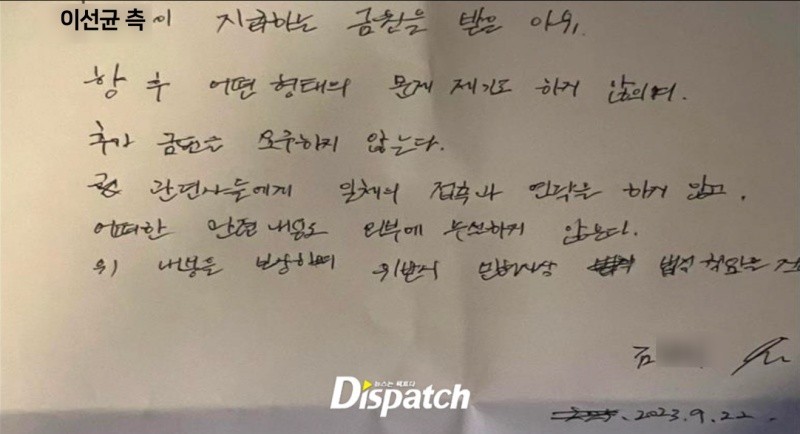 이선균 측이 지급하는 금원을 받은 이후,
향후 어떤 형태의 문제 제기도 하지 않으며,
추가 금전을 요구하지 않는다.
관련자들에게 일체의 접촉과 연락을 하지 않고,
어떠한 관련 내용도 외부에 누설하지 않는다.
위 내용을 보장하며 위반시 민형사상 법적 책임을
김
뉴스는 팩트다
Dispatch
2023.9.22.